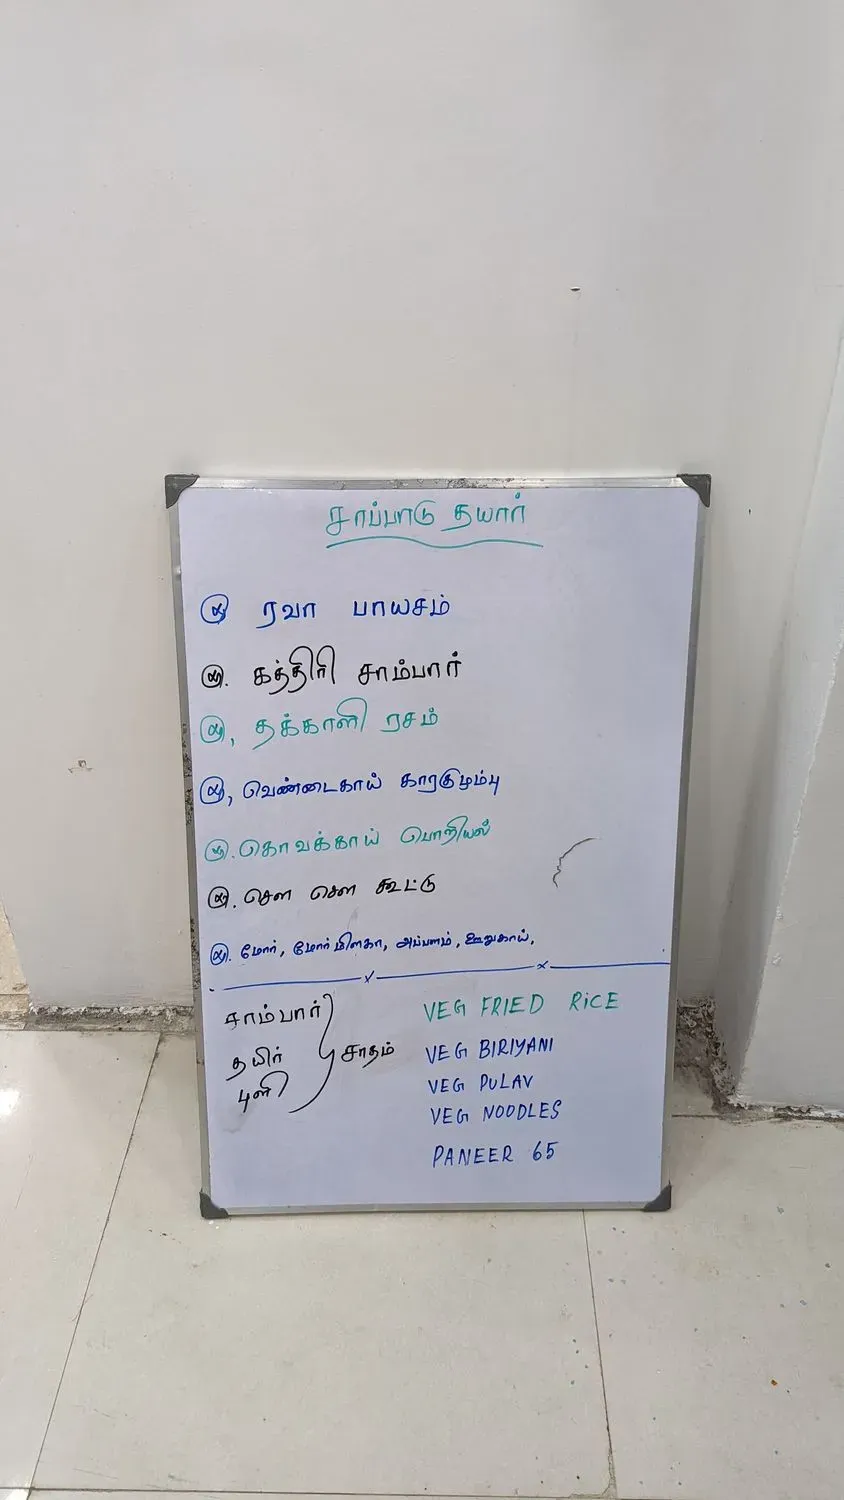 சாப்பாடு தயார்
ரவா பாயசம்
கத்திரி சாம்பார்
தக்காளி ரசம்
வெண்டைகாய் காரகுழம்பு
கொவக்காய் பொறியல்
சௌ சௌ கூட்டு
மோர், மோர் மிளகா, அப்பளம், ஊறுகாய்,
சாம்பார்
தயிர்
புளி
சாதம்
VEG FRIED RiCE
VEG BIRIYANI
VEG PULAV
VEG NOODLES
PANEER 65